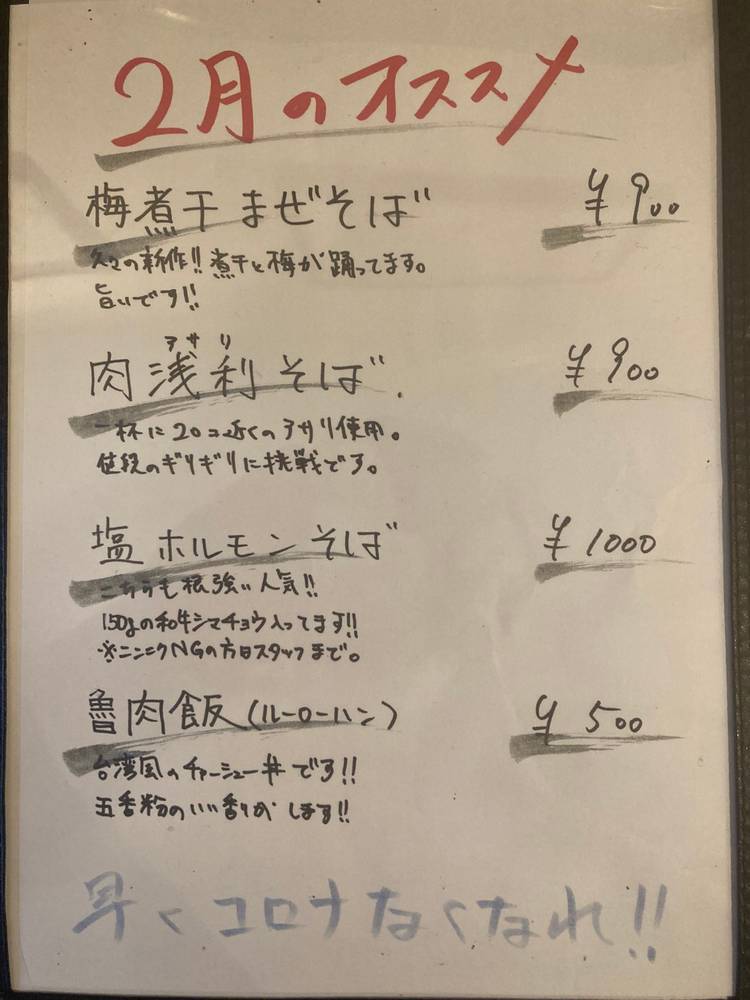 2月のオススメ
梅煮干まぜそば ¥900
久々の新作!! 煮干と梅が踊ってます。
旨いです!!
アサリ
肉浅利そば ¥900
一杯に20コ近くのアサリ使用。
値段のギリギリに挑戦です。
塩ホルモンそば ¥1000
こちらも根強い人気!!
150gの和牛シマチョウ入ってます!!
※ニンニクNGの方はスタッフまで。
魯肉飯(ルーローハン) ¥500
台湾風のチャーシュー丼です!!
五香粉のいい香りがします!!
早くコロナなくなれ!!